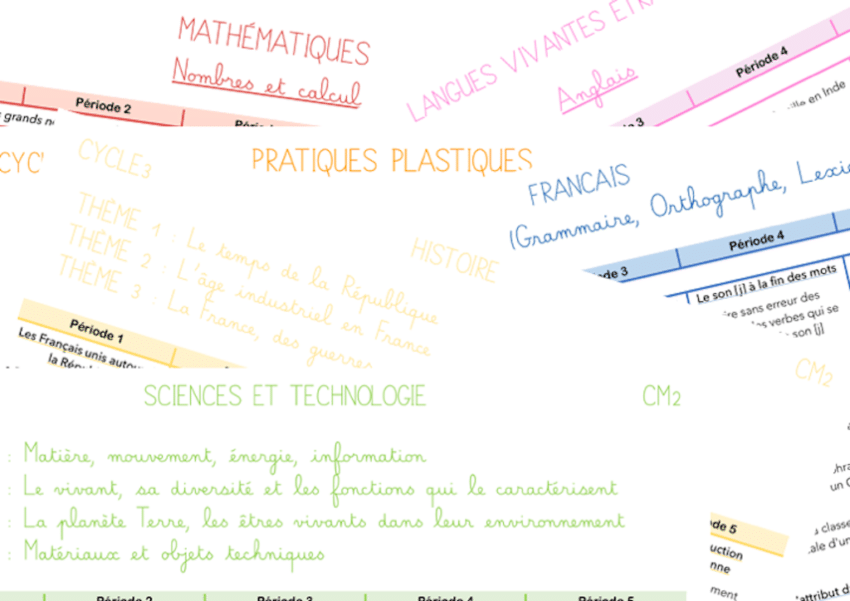 MATHÉMATIQUES
Nombres et calcul
Période 2
grands
LANGUES VIVANTES
Anglais
Période 4
3
en Inde
CYCLE3
PRATIQUES PLASTIQUES
THÈME 1 : Le temps de la République
THÈME 2 : L'âge industriel en France
THÈME 3 : La France, des guerres
HISTOIRE
Période 1
Les Français unis
la
FRANCAIS
(Grammaire, Orthographe,
de 3
Période 4
Le son [j] à la fin des mots
sans erreur des
verbes qui se
son [j]
SCIENCES ET TECHNOLOGIE
CM2
: Matière, mouvement, énergie, information
: Le vivant, sa diversité et les fonctions qui le caractérisent
: La planète Terre, les êtres vivants dans leur environnement
: Matériaux et objets techniques
Période 2
Période 3
Période 4
Période 5
CM2
de 5
un
classe
d'un